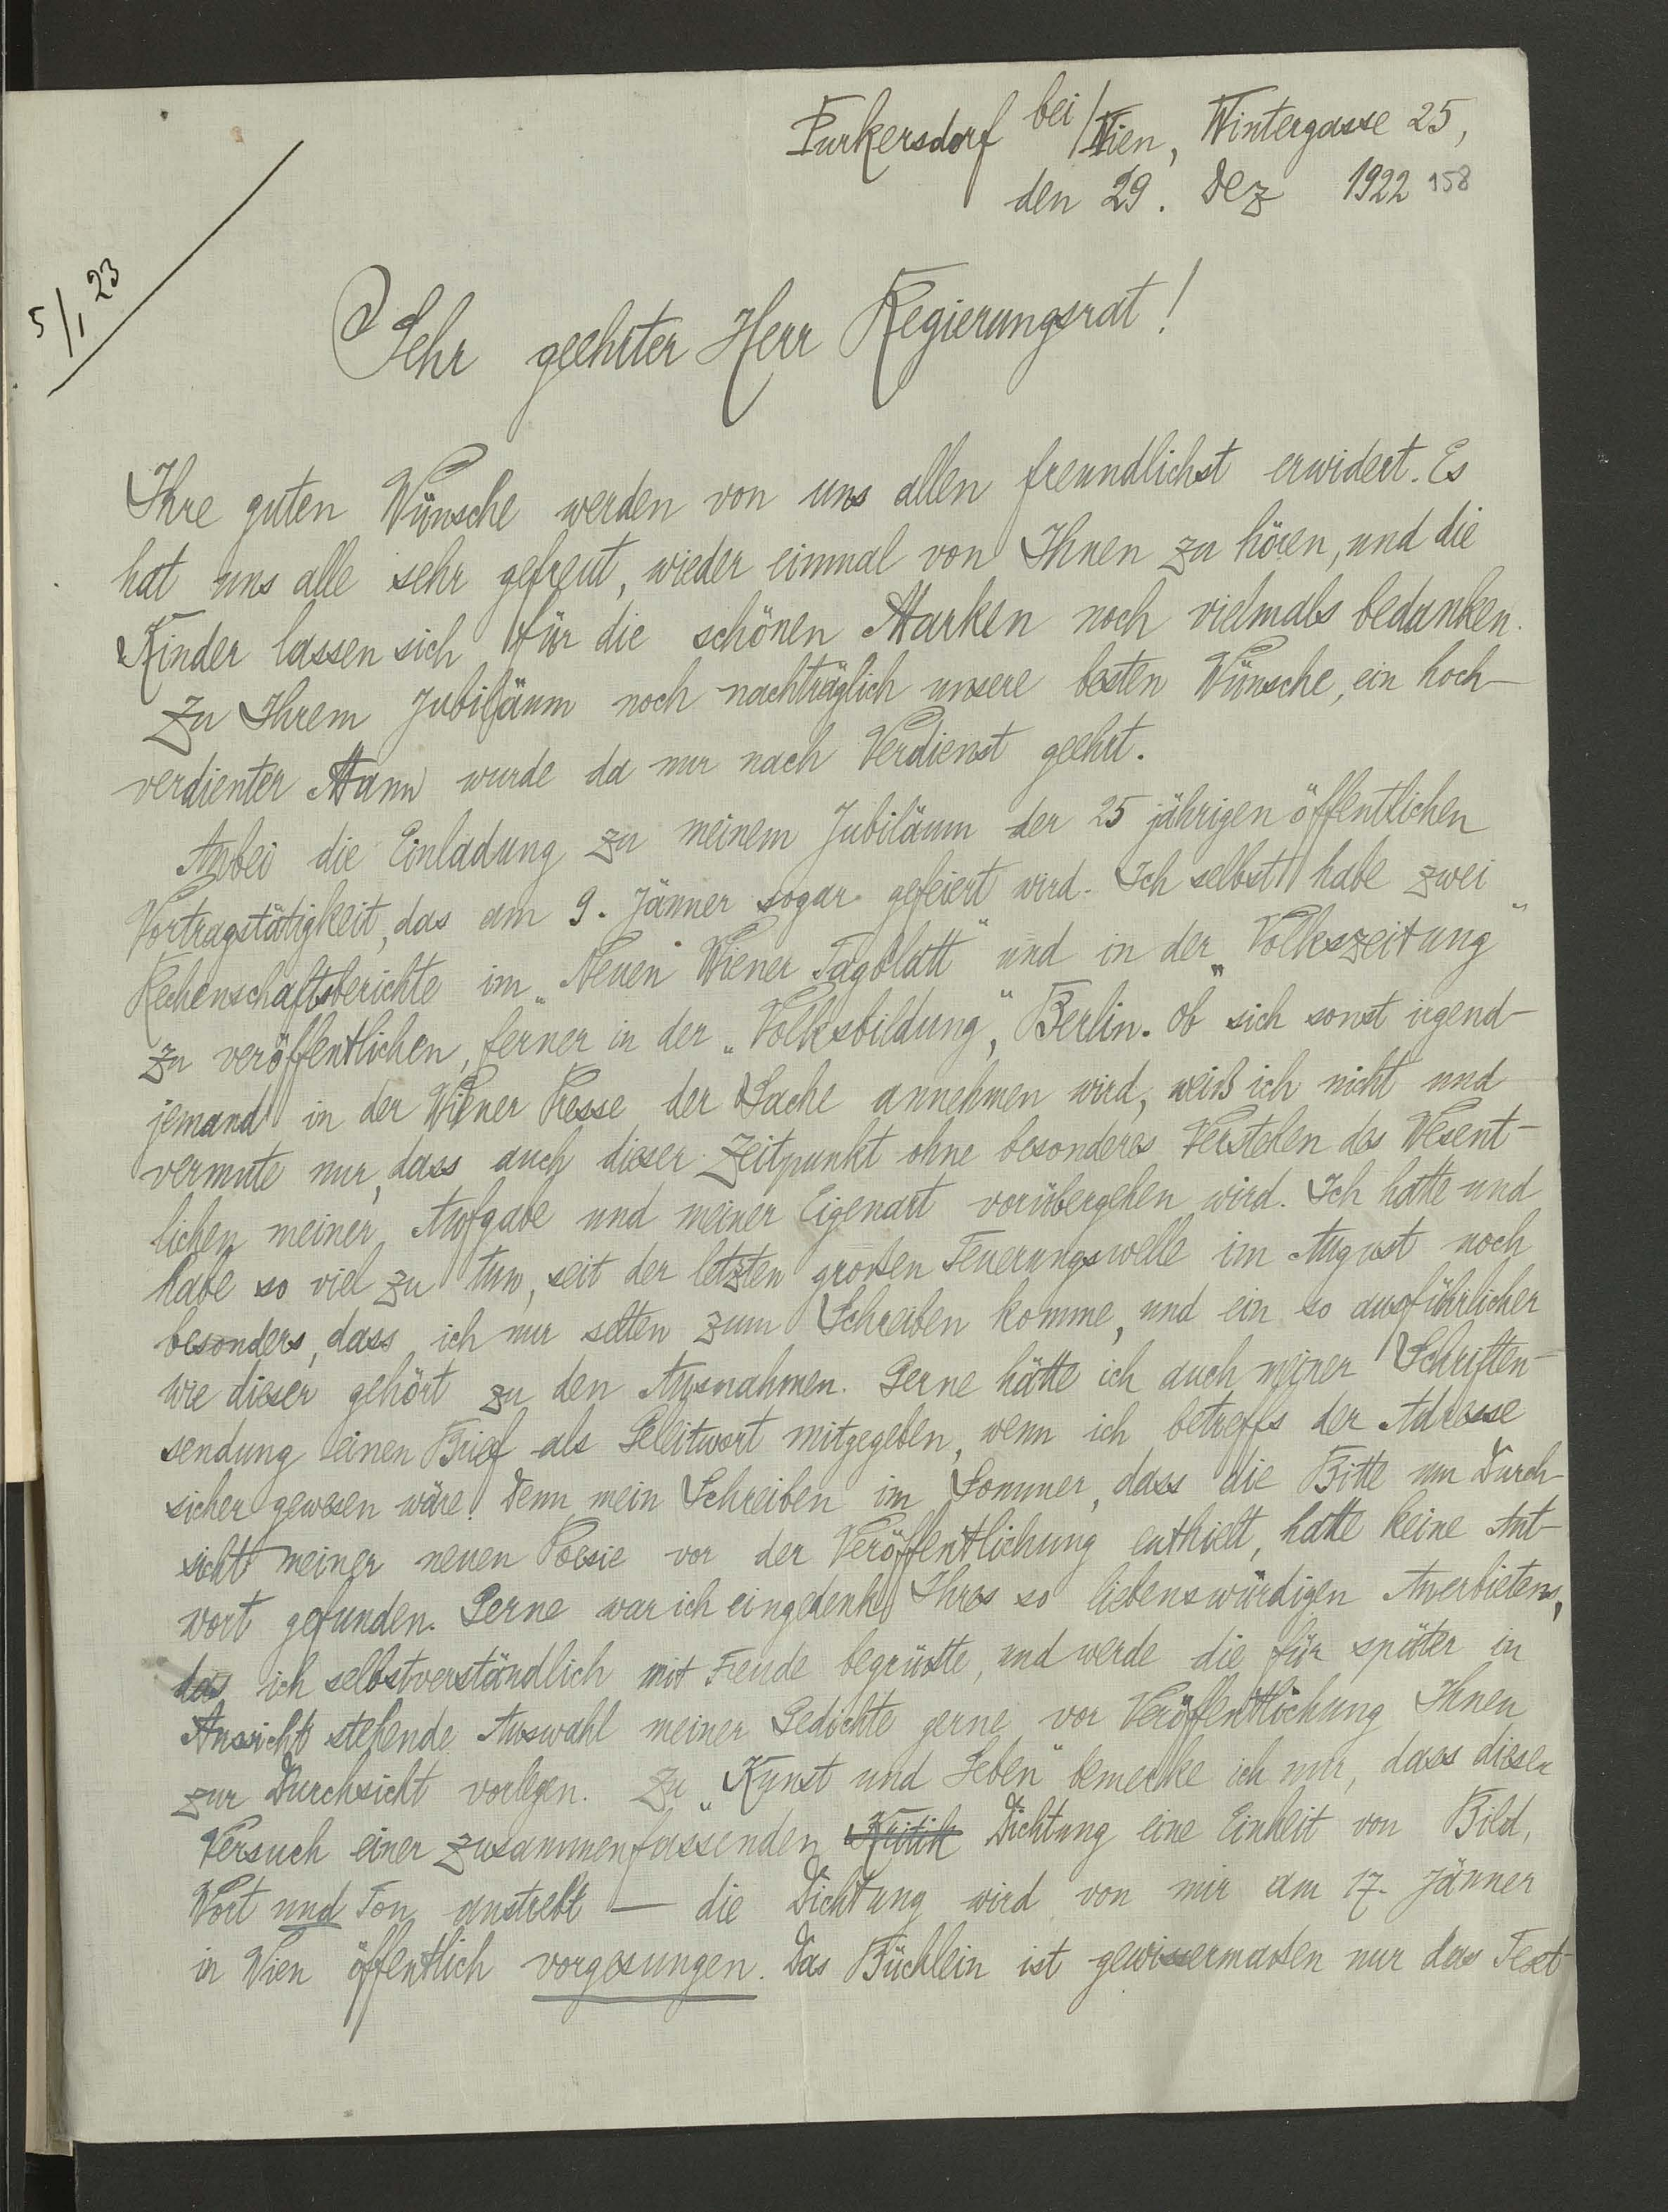 Purkersdorf bei/Wien, Wintergasse 25,
den 29. Dez 1922 158
5/I 23
Sehr geehrter Herr Regierungsrat!
Ihre guten Wünsche werden von uns allen freundlichst erwidert. Es
hat uns alle sehr gefreut, wieder einmal von Ihnen zu hören, und die
Kinder lassen sich für die schönen Marken noch vielmals bedanken.
Zu Ihrem Jubiläum noch nachträglich unsere besten Wünsche, ein hoch-
verdienter Mann wurde da nur nach Verdienst geehrt.
Anbei die Einladung zu meinem Jubiläum der 25 jährigen öffentlichen
Vortragstätigkeit, das am 9. Jänner sogar gefeiert wird. Ich selbst habe zwei
Rechenschaftsberichte im „Neuen Wiener Tagblatt" und in der „Volkszeitung"
zu veröffentlichen, ferner in der „Volksbildung", Berlin. Ob sich sonst irgend-
jemand in der Wiener Presse der Sache annehmen wird, weiß ich nicht und
vermute nur, dass auch dieser Zeitpunkt ohne besonderes Verstehen des Wesent-
lichen meiner Aufgabe und meiner Eigenart vorübergehen wird. Ich hatte und
habe so viel zu tun, seit der letzten großen Teuerungswelle im August noch
besonders, dass ich nur selten zum Schreiben komme, und ein so ausführlicher
wie dieser gehört zu den Ausnahmen. Gerne hätte ich auch meiner Schriften-
sendung einen Brief als Geleitwort mitgegeben, wenn ich betreffs der Adresse
sicher gewesen wäre. Denn mein Schreiben im Sommer, dass die Bitte um Durch-
sicht meiner neuen Poesie vor der Veröffentlichung enthielt, hatte keine Ant-
wort gefunden. Gerne war ich eingedenk Ihres so liebenswürdigen Anerbietens,
das ich selbstverständlich mit Freude begrüßte, und werde die für später in
Aussicht stehende Auswahl meiner Gedichte gerne vor Veröffentlichung Ihnen
zur Durchsicht vorlegen. Zu „Kunst und Leben" bemerke ich nur, dass dieser
Versuch einer zusammenfassenden Kritik Dichtung eine Einheit von Bild,
Wort und Ton anstrebt — die Dichtung wird von mir am 17. Jänner
in Wien öffentlich vorgesungen. Das Büchlein ist gewissermaßen nur das Text-